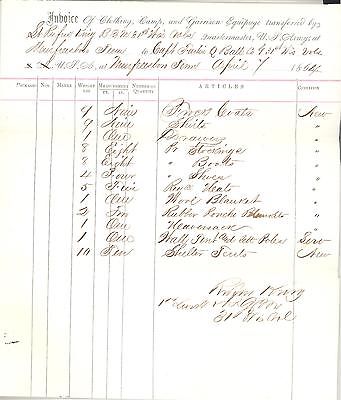 Invoice Of Clothing, Camp, and Garrison Equipage transferred by
Lt Rufus King R.Q.M. 31st Wis Vols Quartermaster, U.S. Army, at
Murfreesboro Tenn to Capt 31st Wis Vols
U.S.A. at Murfreesboro Tenn April 7 1864
PACKAGES NOS. MARKS WEIGHT MEASUREMENT FT. IN. NUMBER OR QUANTITY ARTICLES CONDITION
9 Nine Coats New
9 Nine Shirts "
1 One Drawers "
8 Eight Pr Stockings "
8 Eight " Boots "
4 Four " Shoes "
5 Five Hats "
1 One Wool Blanket "
2 Two Rubber Poncho Blankets "
1 One Haversack "
1 One Wall Tent Poles
10 Ten Shelter Tents New
Rufus King
1st Lieut
31st